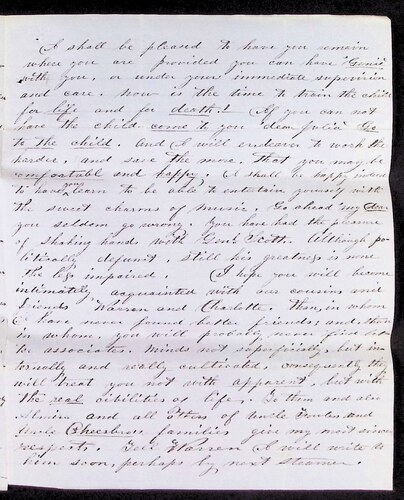 "I shall be pleased to have you remain
where you are provided you can have "Genie"
with you, or under your immediate supervision
and care. now is the time to train the child
for life and for death! If you can not
have the child come to you dear Julia Go
to the child. And I will endeavor to work the
harder, and save the more, that you may be
comfortable and happy. I shall be happy indeed
to have you learn to be able to entertain yourself with
the sweet charms of music. Go ahead my dear
you seldom go wrong. You have had the pleasure
of shaking hands with Genl. Scott. Although po
litically defunct, still his greatness is none
the less impaired. I hope you will become
intimately acquainted with our cousins and
friends Warren and Charlotte. Than, in whom
I have never found better friends; and than
in whom, you will probably never find
associates. Minds not superficially, but in
ternally and really cultivated, consequently they
will treat you not with apparent, but with
the real civilities of life. To them and also
and all of Uncle and
Uncle families give my most sincere
respects. Tell Warren I will write to
him soon, perhaps by next steamer.